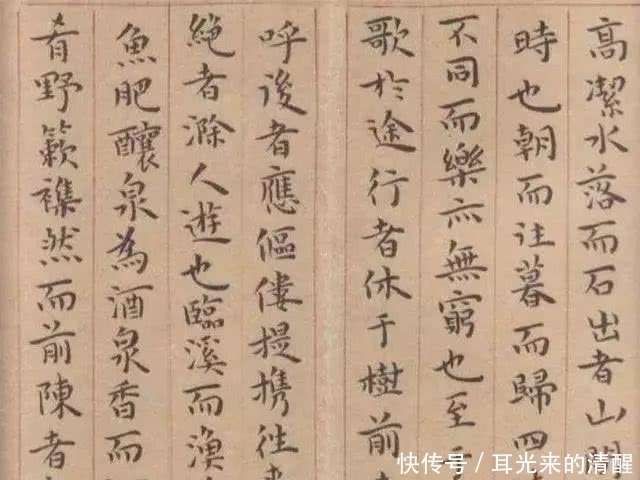 高潔水落而石出者山間
時也朝而往暮而歸四
不同而樂亦無窮也至
歌於途行者休于樹前
呼後者應傴僂提携往
絶者滁人遊也臨溪而漁
魚肥釀泉為酒泉香而
肴野簌襍然而前陳者
快传号/耳光来的清醒